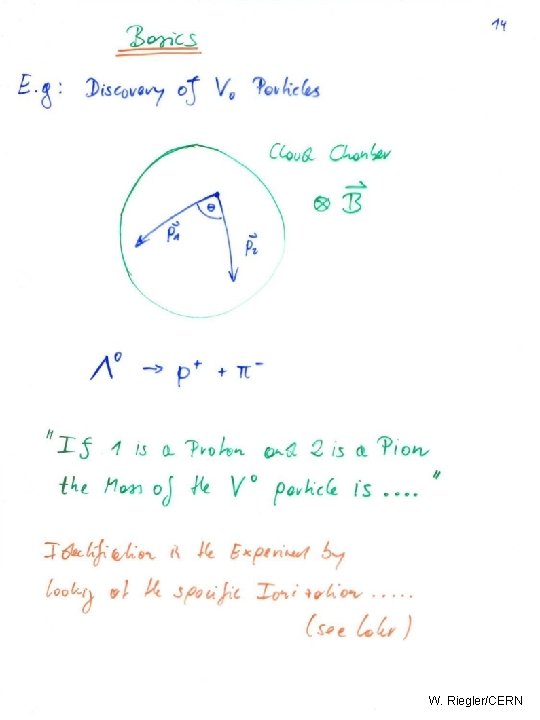 14
Basics
E.g: Discovery of V₀ Particles
Cloud Chamber
⊗ B⃗
θ
p⃗₁
p⃗₂
Λ⁰ → p⁺ + π⁻
"If 1 is a Proton and 2 is a Pion
the Mass of the V⁰ particle is ...."
Identification in the Experiment by
looking at the specific Ionization .....
(see later)
W. Riegler/CERN